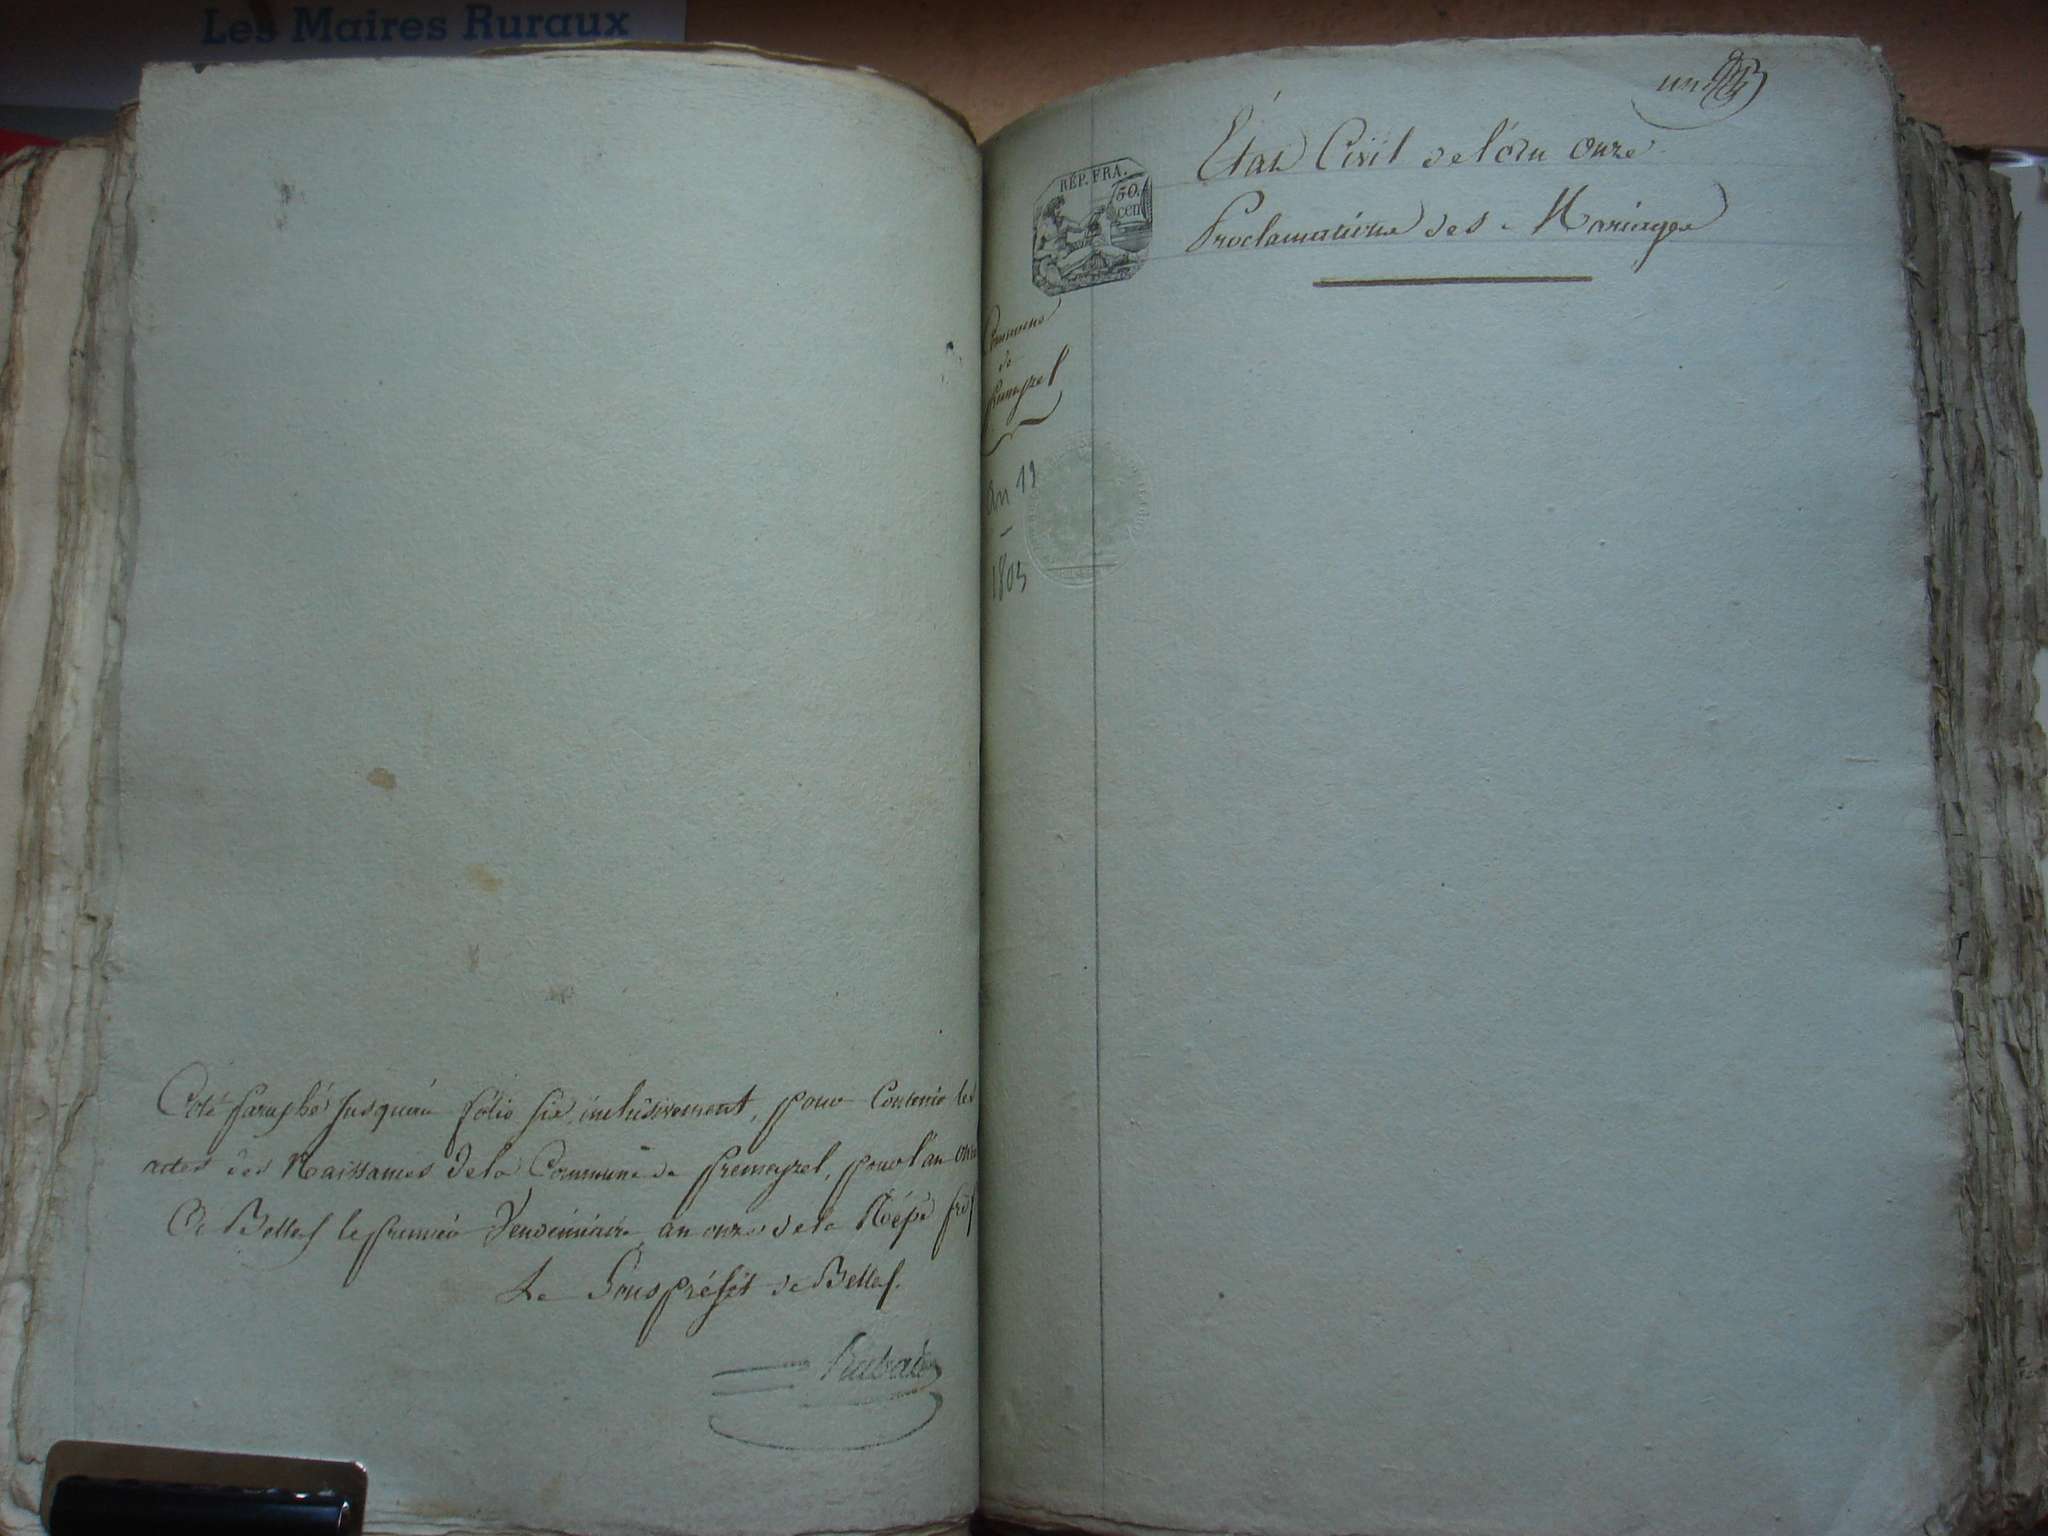 Les Maires Ruraux
Coté paraphé jusqu'au folio six inclusivement, pour Contenir les
actes des Naissances de la Commune de fremeyzel, pour l'an onze
Ce premier Vendemiaire an onze de la Rép
Le Sous préfet de
un
RÉP. FRA.
50.
cen
État Civil de l'an Onze
Proclamations des Mariages
Commune
de
fremeyzel
an 11
1803